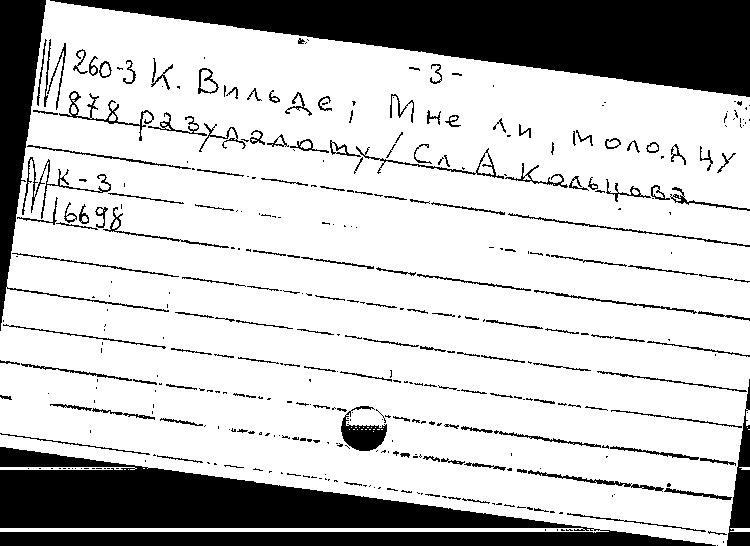 -3-
М 260-3 К. Вильде; Мне ли, молодцу
878 разудалому / Сл. А. Кольцова
М К-3
16698